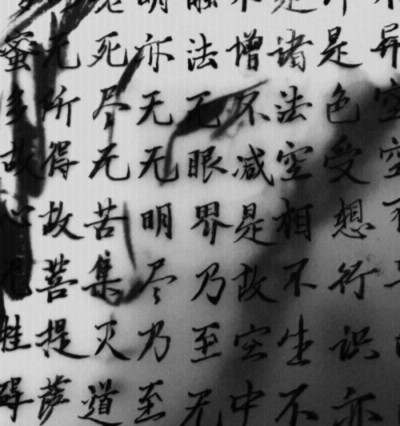 异空空不
是色受想行识亦
是诸法空相不生不
不增不减是故空中
触法无眼界乃至无
明亦无无明尽乃至
老死尽无苦集灭道
无所得故菩提萨
蜜多故心无挂碍